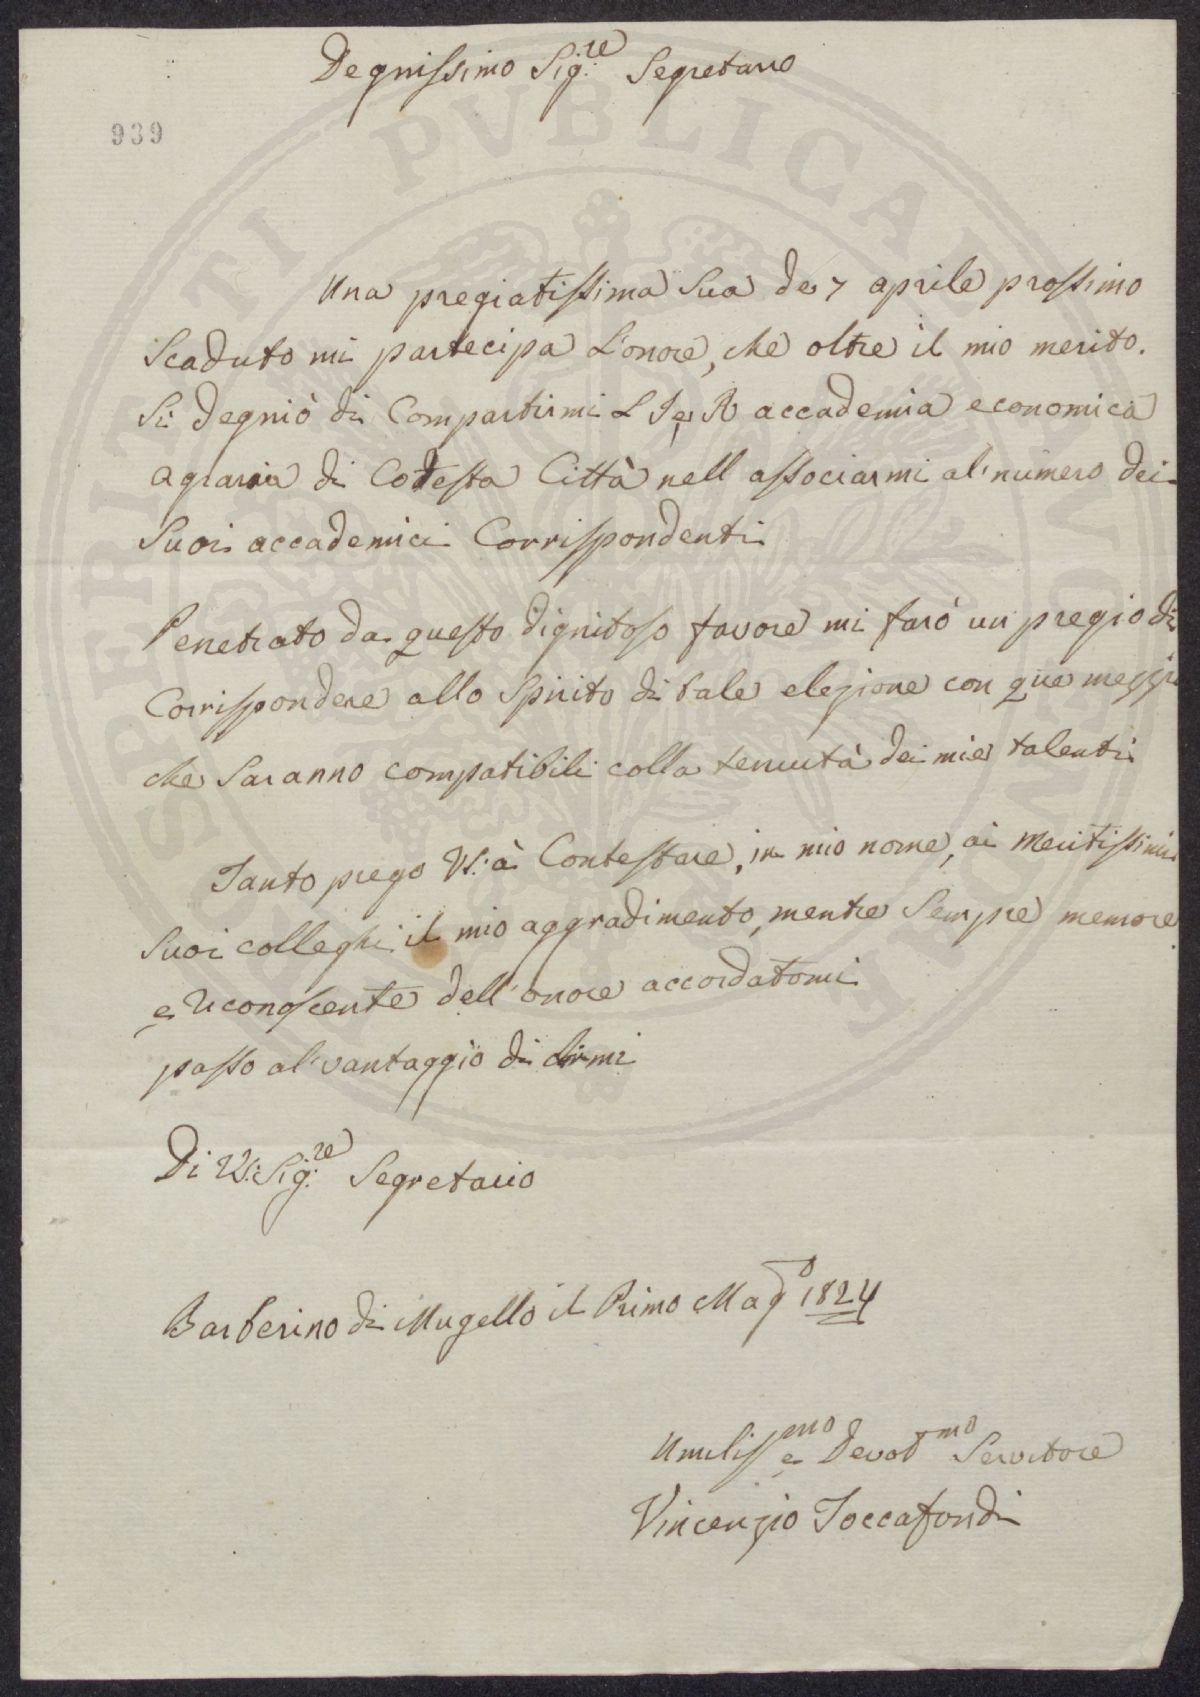 Degnissimo Sig.re Segretario
939
Una pregiatissima Sua de 7 aprile prossimo
Scaduto mi partecipa L'onore, che oltre il mio merito.
Si degniò di Compartirmi L I e R accademia economica
agraria di Codesta Città nell associarmi al' numero dei
Suoi accademici Corrispondenti
Penetrato da questo dignitoso favore mi farò un pregio di
Corrispondere allo Spirito di tale elezione con que mezzi
che Saranno compatibili colla tenuità dei miei talenti
Tanto prego VS: à Contestare, in mio nome, ai meritissimi
Suoi colleghi il mio aggradimento, mentre Sempre memore
e riconoscente dell'onore accordatomi
passo al' vantaggio di dirmi
Di VS: Sig.re Segretario
Barberino di Mugello il Primo Mago 1824
Umilissmo e Devotmo Servitore
Vincenzio Toccafondi
SPERITATI PVBLICAE